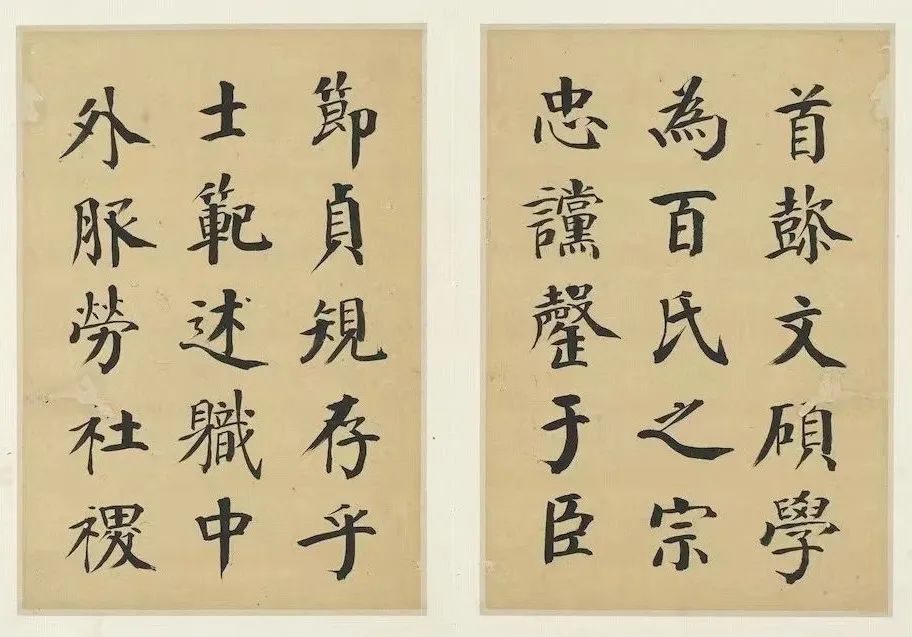 首懿文碩學
為百氏之宗
忠讜罄于臣
節貞規存乎
士範述職中
外服勞社稷